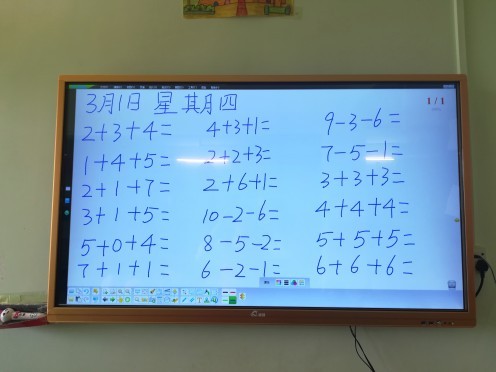 3月1日 星期四
1/1
2+3+4= 4+3+1= 9-3-6=
1+4+5= 2+2+3= 7-5-1=
2+1+7= 2+6+1= 3+3+3=
3+1+5= 10-2-6= 4+4+4=
5+0+4= 8-5-2= 5+5+5=
7+1+1= 6-2-1= 6+6+6=